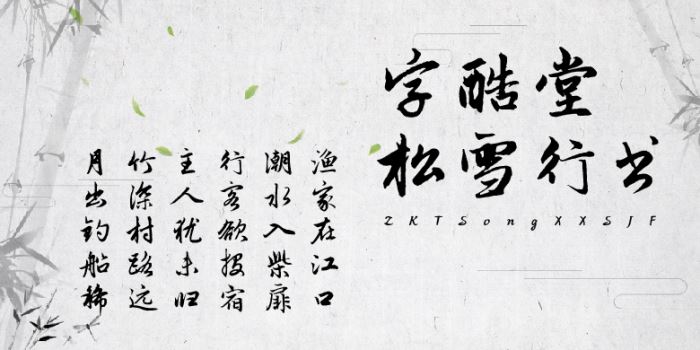 字酷堂
松雪行书
ZKTSongXXSJF
渔家在江口
潮水入柴扉
行客欲投宿
主人犹未归
竹深村路远
月出钓船稀